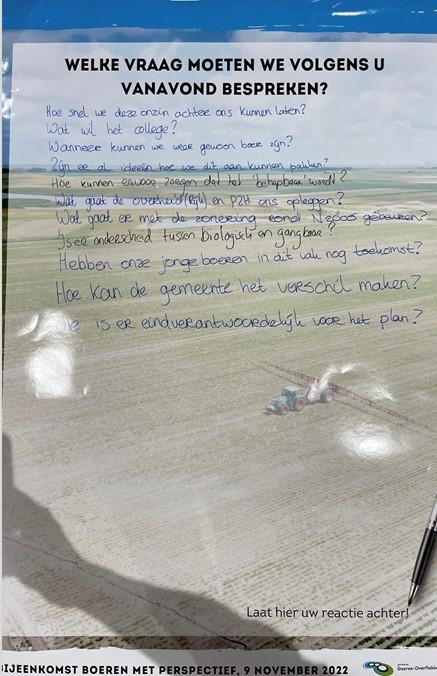 WELKE VRAAG MOETEN WE VOLGENS U
VANAVOND BESPREKEN?
Hoe snel we deze onzin achter ons kunnen laten?
Wat wil het college?
Wanneer kunnen we weer gewoon boer zijn?
Zijn er al ideeën hoe we dit aan kunnen pakken?
Hoe kunnen ervoor zorgen dat het 'behapbaar' wordt?
Wat gaat de overheid (Rijk) en PZH ons opleggen?
Wat gaat er met de zonering rond N2000 gebeuren?
Is er onderscheid tussen biologisch en gangbaar?
Hebben onze jonge boeren in dit vak nog toekomst?
Hoe kan de gemeente het verschil maken?
is er eindverantwoordelijk voor het plan?
Laat hier uw reactie achter!
BIJEENKOMST BOEREN MET PERSPECTIEF, 9 NOVEMBER 2022
Goeree-Overflakkee